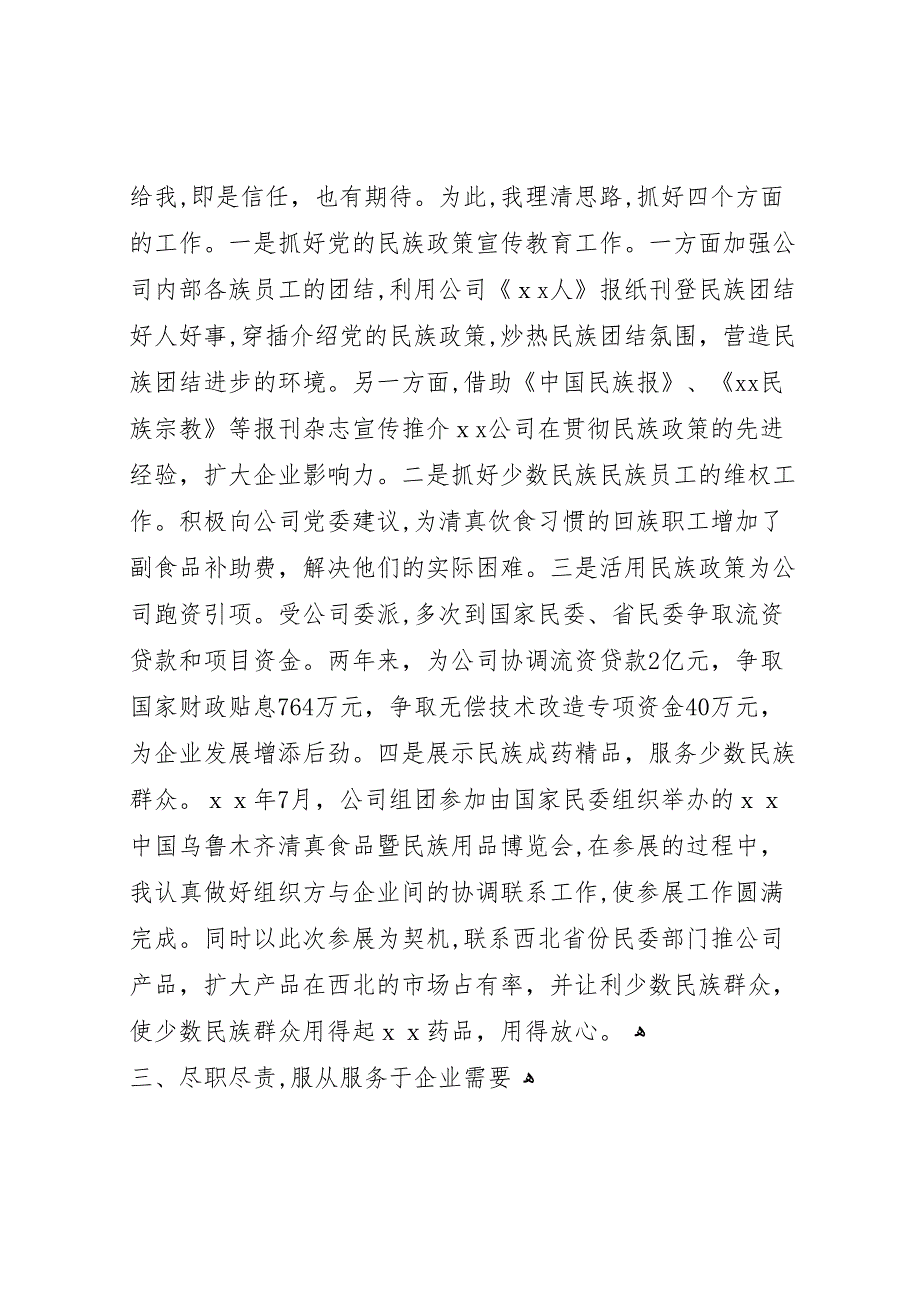 给我,即是信任，也有期待。为此,我理清思路,抓好四个方面
的工作。一是抓好党的民族政策宣传教育工作。一方面加强公
司内部各族员工的团结,利用公司《ｘx人》报纸刊登民族团结
好人好事,穿插介绍党的民族政策,炒热民族团结氛围，营造民
族团结进步的环境。另一方面,借助《中国民族报》、《xx民
族宗教》等报刊杂志宣传推介ｘx公司在贯彻民族政策的先进
经验，扩大企业影响力。二是抓好少数民族民族员工的维权工
作。积极向公司党委建议,为清真饮食习惯的回族职工增加了
副食品补助费，解决他们的实际困难。三是活用民族政策为公
司跑资引项。受公司委派,多次到国家民委、省民委争取流资
贷款和项目资金。两年来，为公司协调流资贷款2亿元，争取
国家财政贴息764万元，争取无偿技术改造专项资金40万元，
为企业发展增添后劲。四是展示民族成药精品，服务少数民族
群众。ｘｘ年7月，公司组团参加由国家民委组织举办的ｘｘ
中国乌鲁木齐清真食品暨民族用品博览会,在参展的过程中，
我认真做好组织方与企业间的协调联系工作,使参展工作圆满
完成。同时以此次参展为契机,联系西北省份民委部门推公司
产品，扩大产品在西北的市场占有率，并让利少数民族群众，
使少数民族群众用得起ｘｘ药品，用得放心。 ﻫ
三、尽职尽责,服从服务于企业需要 ﻫ